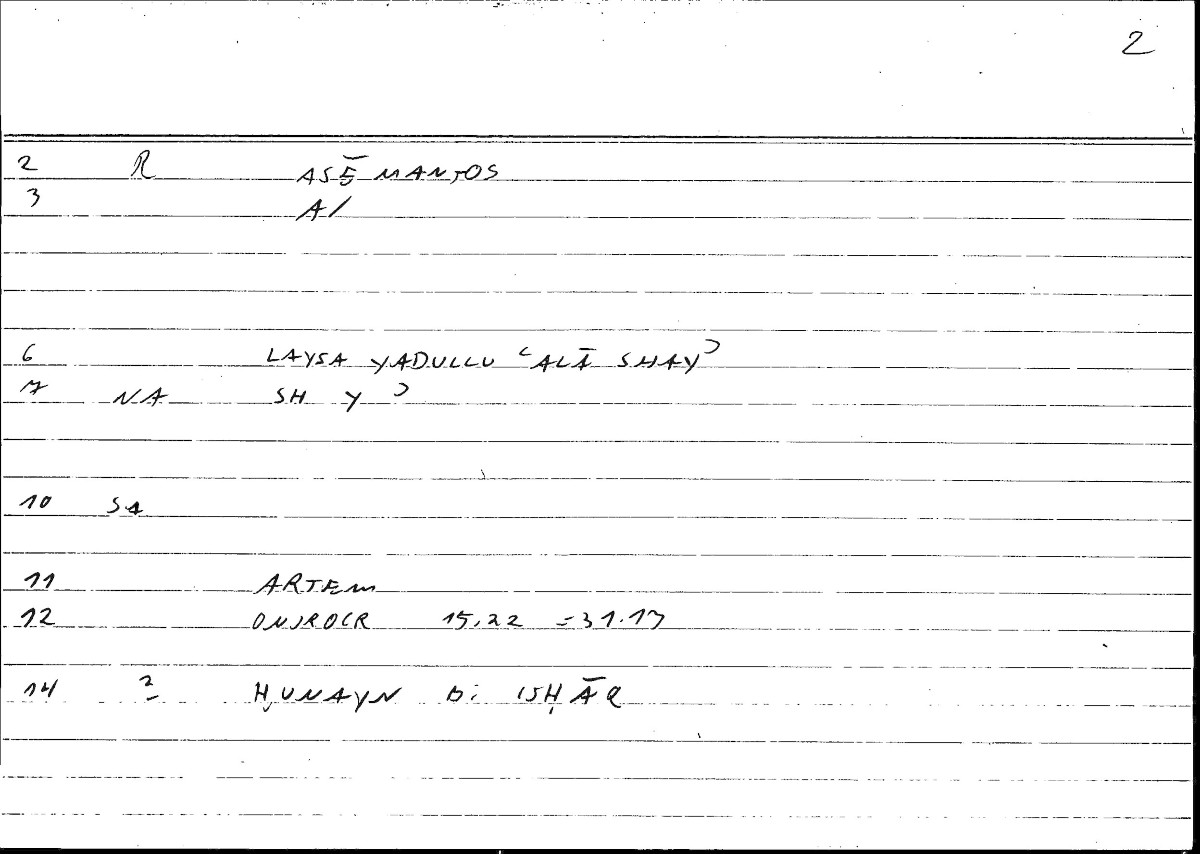 2
2 R ASĒMANTOS
3 A/
6 LAYSA YADULLU ʿALĀ SHAYʾ
7 NA SH Y ʾ
10 S1
11 ARTEM
12 ONIROCR 15,22 = 31.13
14 2 ḤUNAYN B. ISḤĀQ